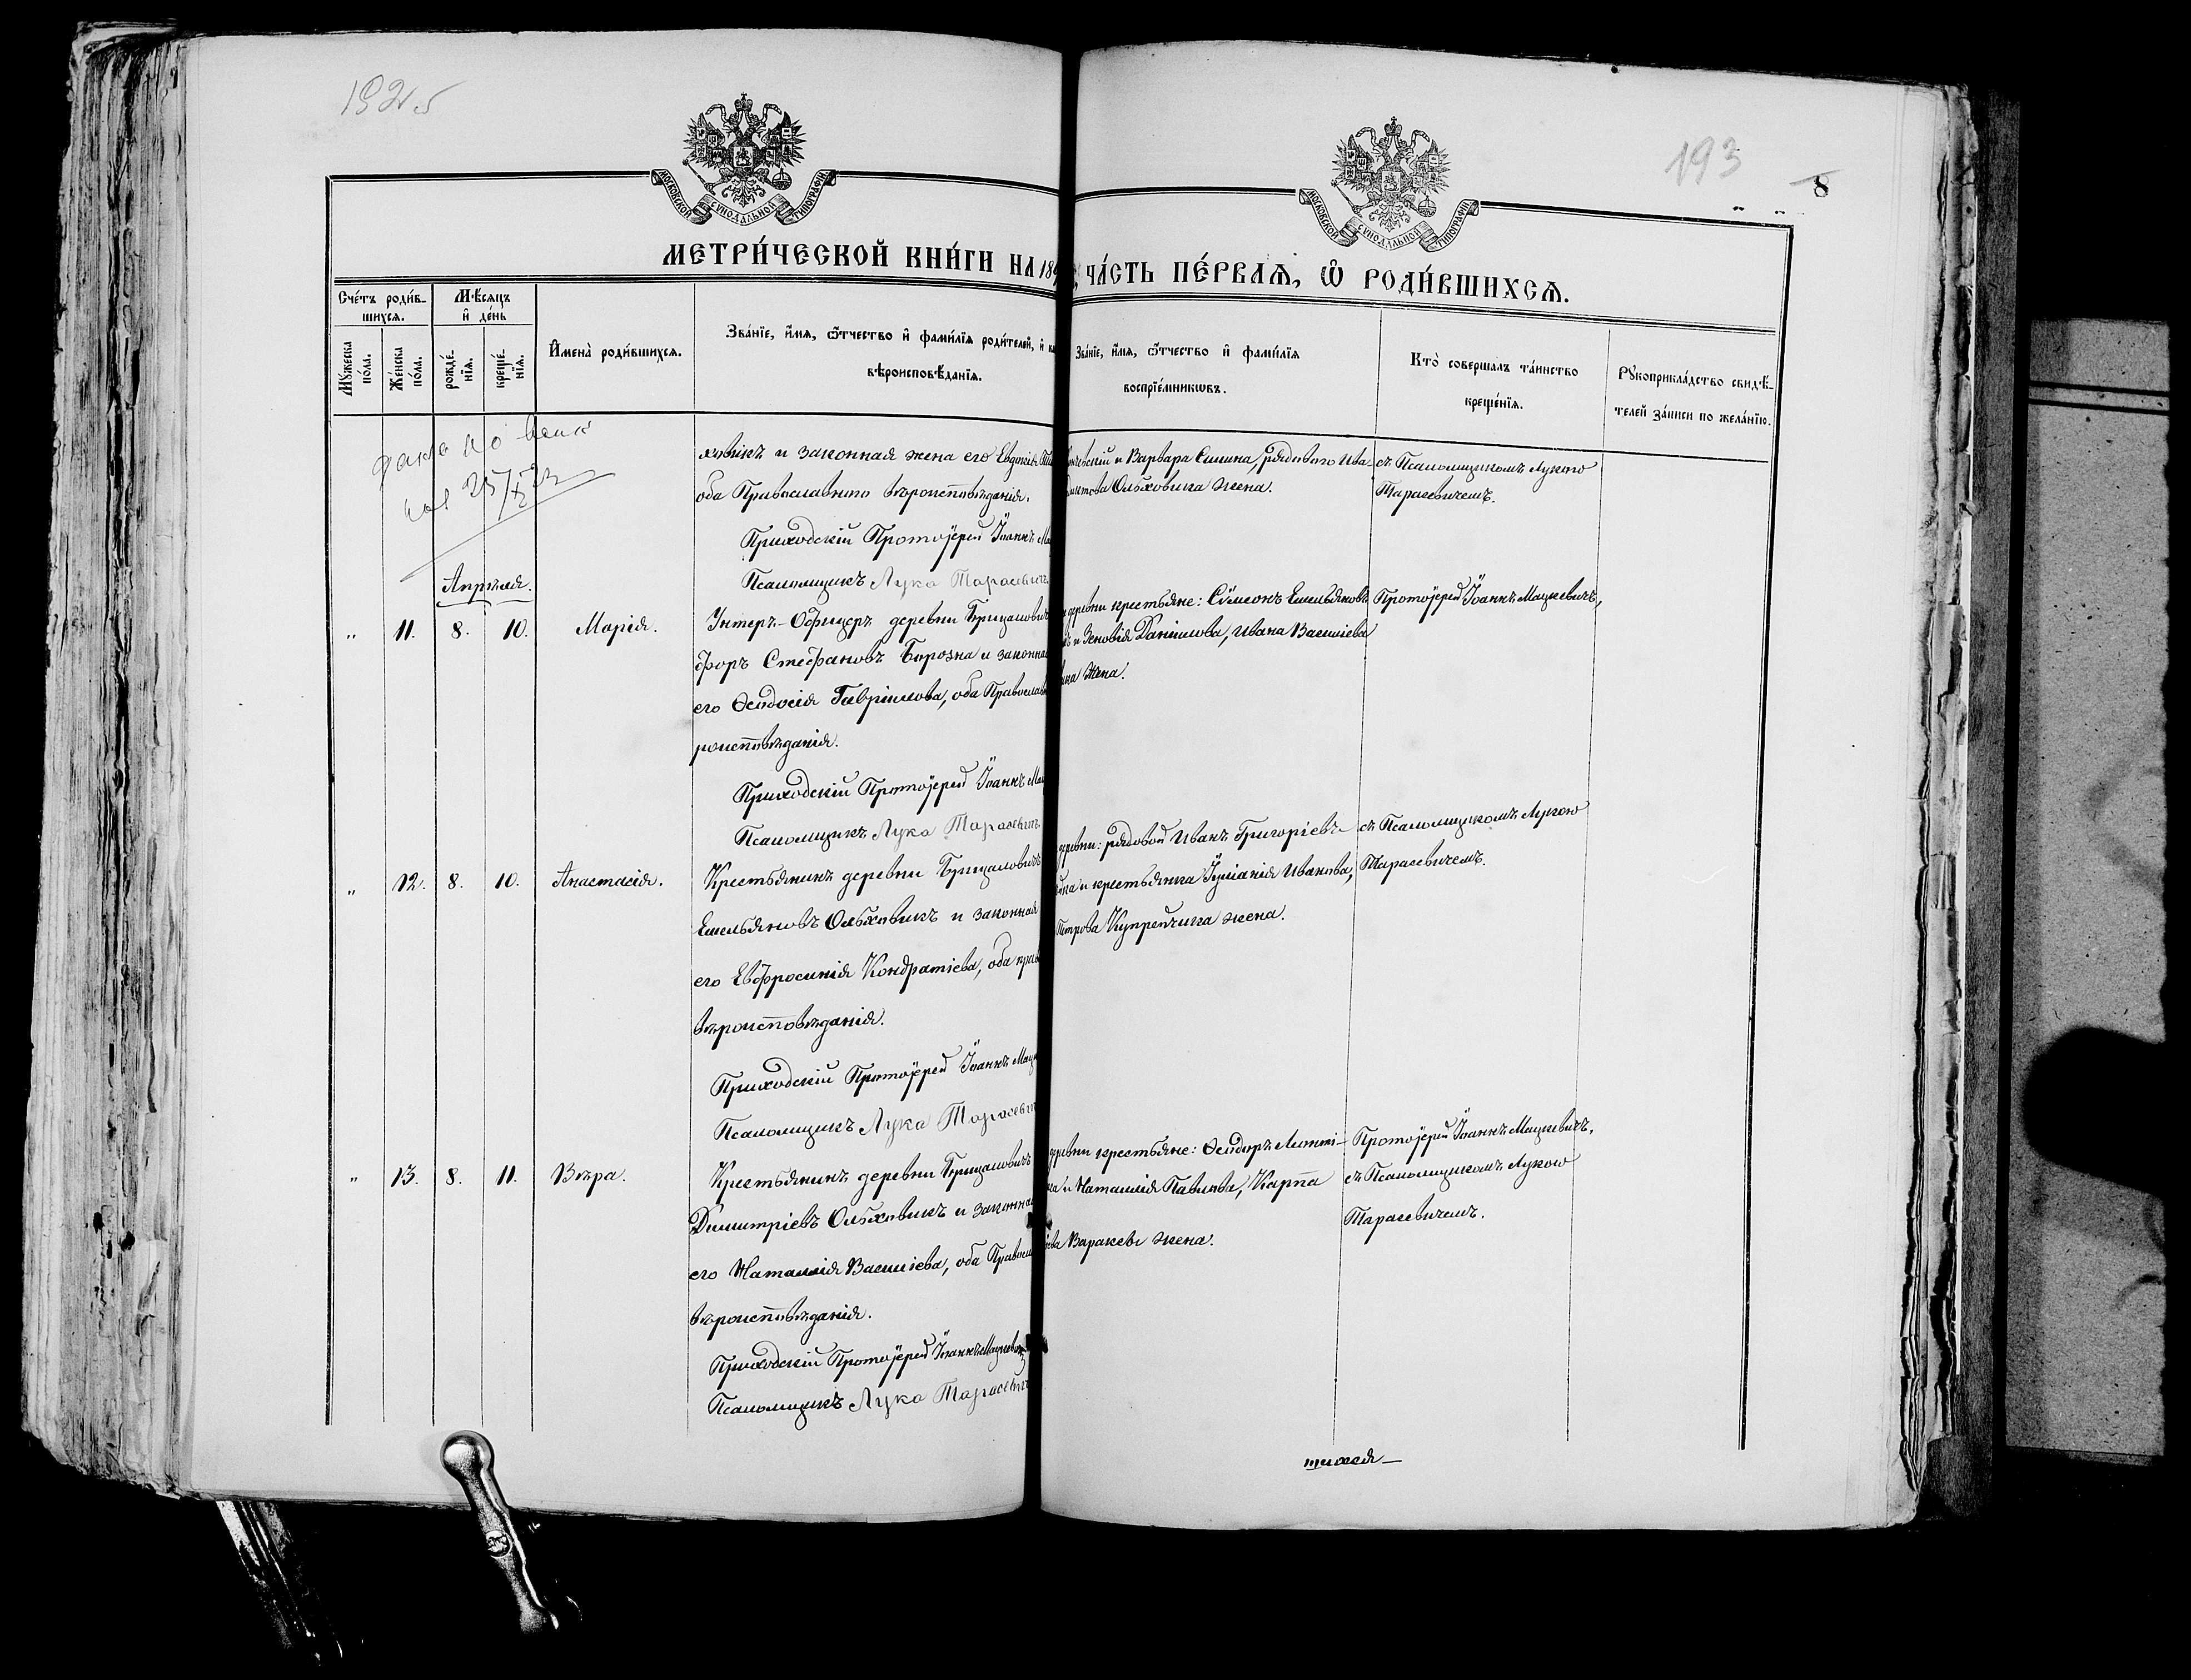 192об
193
8
МОСКОВСКОЙ СУНОДАЛЬНОЙ ТИПОГРАФІИ
МОСКОВСКОЙ СУНОДАЛЬНОЙ ТИПОГРАФІИ
МЕТРИ́ЧЕСКОЙ КНИ́ГИ НА 189
ЧА́СТЬ ПЕ́РВАѦ, Ѽ РОДИ́ВШИХСѦ.
Сче́тъ роди́в-
шихсѧ.
Мꙋ́жеска по́ла.
Же́нска по́ла.
Мѣ́сѧцъ
и҆ де́нь
рожде́-
нїѧ.
креще́-
нїѧ.
И҆мена̀ роди́вшихсѧ.
Зва́нїе, и҆́мѧ, ѻ҆́тчество и҆ фами́лїѧ роди́телей, и҆
вѣроисповѣ́данїѧ.
Зва́нїе, и҆́мѧ, ѻ҆́тчество и҆ фами́лїѧ
воспрїе́мникѡвъ.
Кто̀ соверша́лъ та́инство
креще́нїѧ.
Рꙋкоприкла́дство свидѣ́-
телей за́писи по жела́нїю.
ховикъ и законная жена его Евдокія
оба Православнаго вѣроисповѣданія.
Приходскій Протоіерей Іоаннъ
Псаломщикъ Лука Тарасевичъ
и Варвара Симина, рядового Ива-
Ольховика жена.
съ Псаломщикомъ Лукою
Тарасевичемъ.
Апрѣля.
" 11. 8. 10. Марія.
Унтеръ-Офицеръ деревни Брицаловичъ
форъ Стефановъ Борозна и законная
его Ѳеодосія Гавріилова, оба Православ
роисповѣданія.
Приходскій Протоіерей Іоаннъ
Псаломщикъ Лука Тарасевичъ
деревни крестьяне: Сѵмеонъ Емельяновъ
и Зеновія Даніилова, Ивана Василіева
жена.
Протоіерей Іоаннъ Мацкевичъ,
съ Псаломщикомъ Лукою
Тарасевичемъ.
" 12. 8. 10. Анастасія.
Крестьянинъ деревни Брицаловичъ
Емельяновъ Ольховикъ и законная
его Евфросинія Кондратіева, оба прав
вѣроисповѣданія.
Приходскій Протоіерей Іоаннъ Мац
Псаломщикъ Лука Тарасевич
деревни: рядовой Иванъ Григоріевъ
и крестьянка Іуліанія Иванова,
Петрова Купрейчика жена.
" 13. 8. 11. Вѣра.
Крестьянинъ деревни Брицаловичъ
Димитріевъ Ольховикъ и законная
его Наталія Василіева, оба Правосл
вѣроисповѣданія.
Приходскій Протоіерей Іоаннъ Мацкевичъ
Псаломщикъ Лука Тарасевич
деревни крестьяне: Ѳеодоръ
и Наталія Павлова, Карпа
жена.
Протоіерей Іоаннъ Мацкевичъ,
съ Псаломщикомъ Лукою
Тарасевичемъ.
шихся